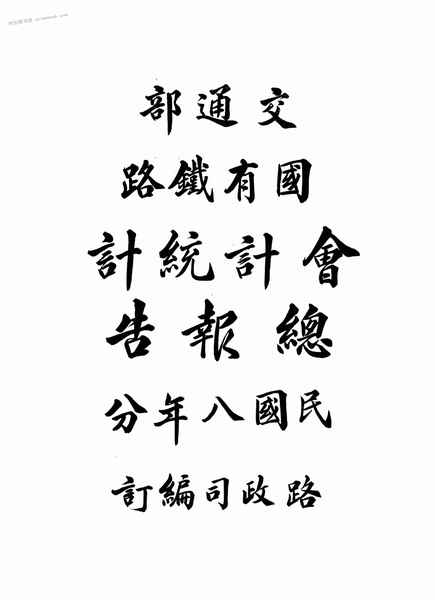 交通部
國有鐵路
會計統計
總報告
民國八年分
路政司編訂